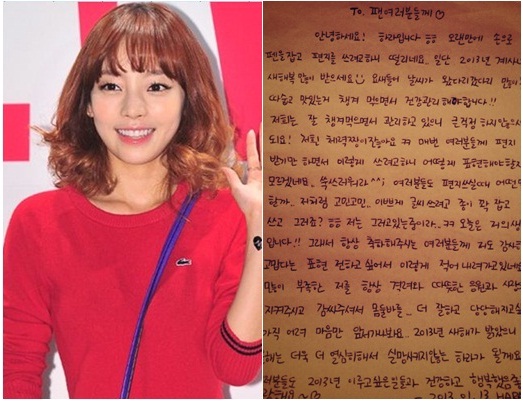 To. 팬여러분들께♡
안녕하세요! 하라입니다 ㅎㅎ 오랜만에 손으로
펜을잡고 편지를 쓰려고하니 떨리네요. 일단 2013년 계사년
새해복 많이 받으세요~ 요새들어 날씨가 왔다리갔다리 많이
따습고 맛있는거 챙겨 먹으면서 건강관리 해야합니다!!
저희는 잘 챙겨먹으면서 관리하고 있으니 큰걱정 하지않으셔
되요! 저흰 체력짱이잖아요 ㅋㅋ 매번 여러분들께 편지
받기만 하면서 이렇게 쓰려고하니 어떻게 표현해야할지
모르겠네요.. 쑥쓰러워라^^; 여러분들도 편지쓰실때 어떤
할까.. 저처럼 고민고민.. 이쁘게 글씨쓰려고 종이 꽉 잡고
쓰고 그러죠? ㅎㅎ 저는 그러고있는중이라..ㅋㅋ 오늘은 저의
입니다!! 그래서 항상 축하해주시는 여러분들께 저도 감사
고맙다는 표현 전하고 싶어서 이렇게 적어 내려가고있네요
많이 부족한 저를 항상 격려와 따뜻한 응원과 사랑
지켜주시고 감싸주셔서 몸둘바를... 더 잘하고 당당해지고싶
아직 어려 마음만 앞서가나봐요.. 2013년 새해가 밝았으니
해는 더욱 더 열심히해서 실망시키지않는 하라가 될게요
여러분들도 2013년 이루고싶은것들과 건강하고 행복했음
2013. 01. 13 HARA